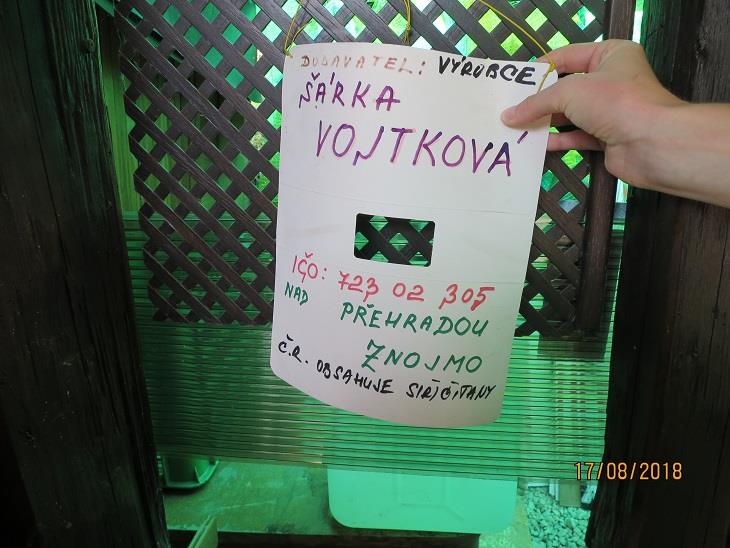 DODAVATEL: VÝROBCE
ŠÁRKA
VOJTKOVÁ
IČO: 723 02 305
NAD PŘEHRADOU
ZNOJMO
Č.R. OBSAHUJE SIŘIČITANY
17/08/2018